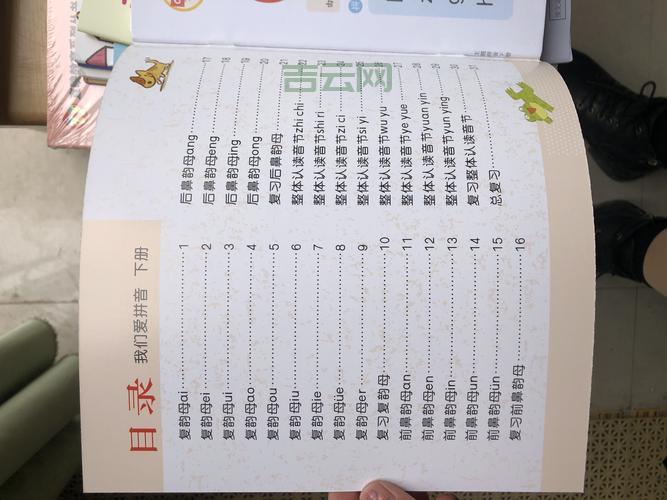 目录 我们爱拼音 下册
复韵母ai 1
复韵母ei 2
复韵母ui 3
复韵母ao 4
复韵母ou 5
复韵母iu 6
复韵母ie 7
复韵母üe 8
复韵母er 9
复习复韵母 10
前鼻韵母an 11
前鼻韵母en 12
前鼻韵母in 13
前鼻韵母un 14
前鼻韵母ün 15
复习前鼻韵母 16
后鼻韵母ang 17
后鼻韵母eng 18
后鼻韵母ing 19
后鼻韵母ong 20
复习后鼻韵母 21
整体认读音节zhi chi 22
整体认读音节shi ri 23
整体认读音节zi ci 24
整体认读音节si yi 25
整体认读音节wu yu 26
整体认读音节ye yue 27
整体认读音节yuan yin 28
整体认读音节yun ying 29
复习整体认读音节 30
总复习 31
吉云网